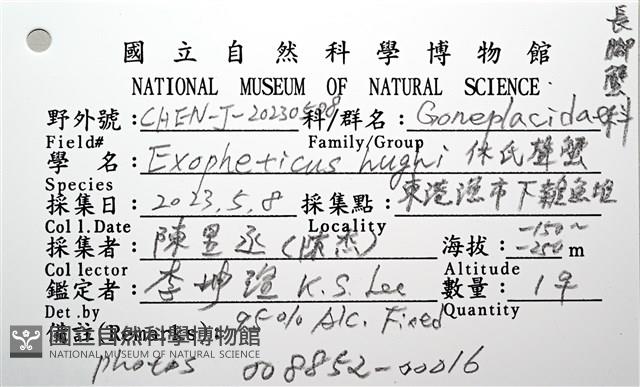 國立自然科學博物館
NATIONAL MUSEUM OF NATURAL SCIENCE
長腳蟹科
野外號:CHEN-J-20230508 科/群名:Goneplacidae
Field# Family/Group
學 名:Exopheticus hughi 休氏聲蟹
Species
採集日:2023.5.8 採集點:東港漁市下雜魚堆
Coll.Date Locality
採集者:陳昱丞(陳杰) 海拔:-150~-250m
Collector Altitude
鑑定者:李坤瑄 K.S. Lee 數量:1♀
Det.by Quantity
備註(Remarks): 95% Alc. Fixed
國立自然科學博物館
NATIONAL MUSEUM OF NATURAL SCIENCE
photos 008852-00016